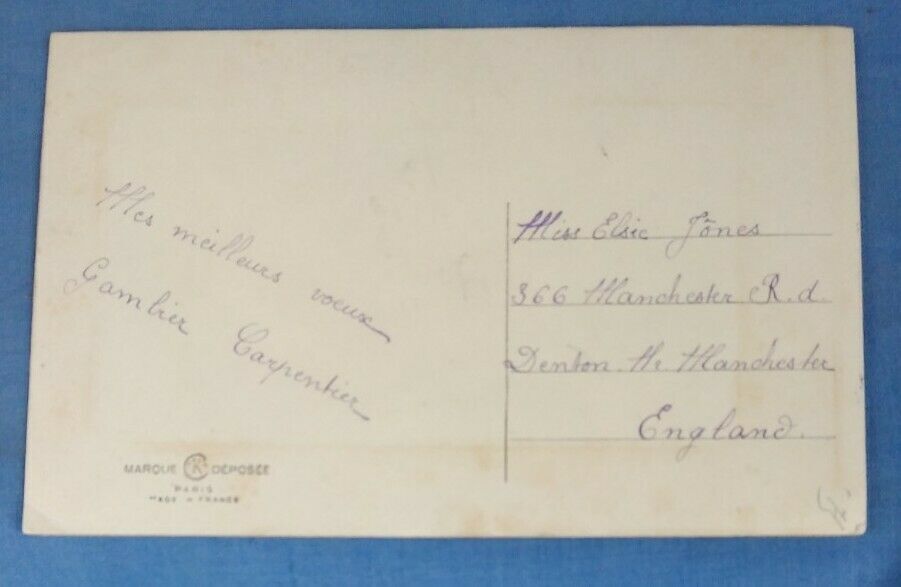 Mes meilleurs voeux
Gambier Carpentier
Miss Elsie Jones
366 Manchester R.d.
Denton. Nr. Manchester
England.
MARQUE DÉPOSÉE
PARIS
MADE IN FRANCE